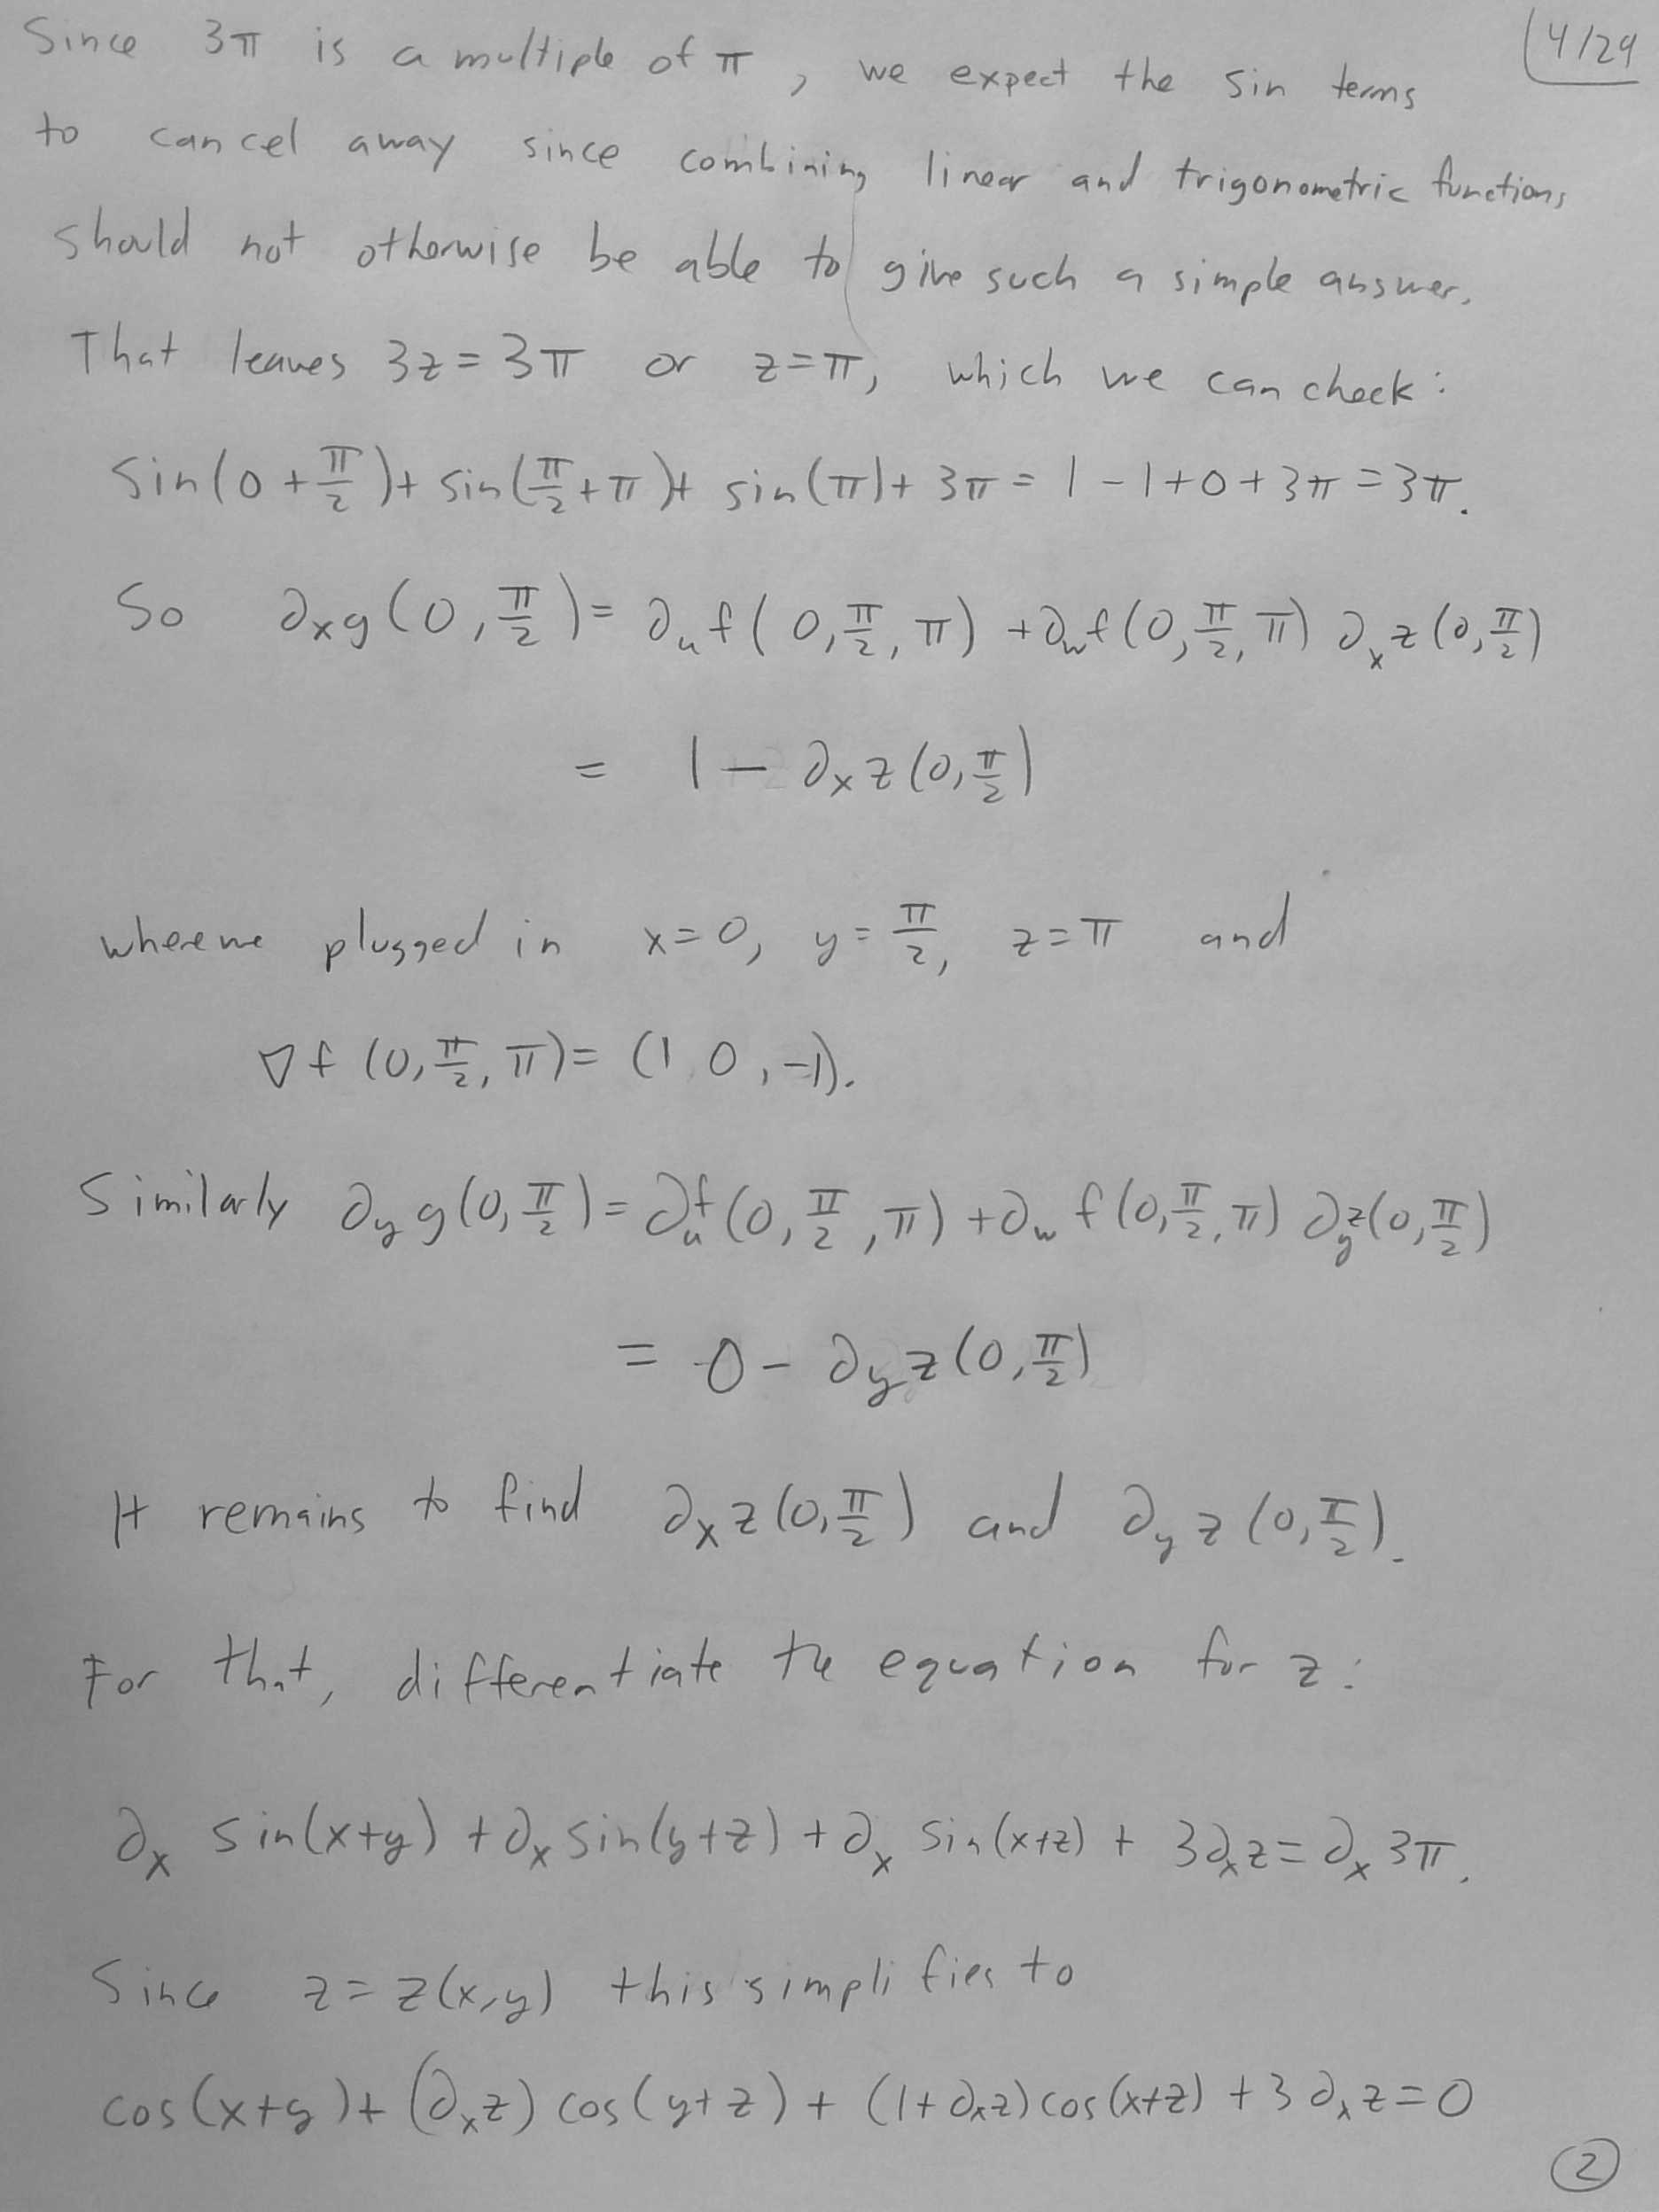 4/29
Since 3π is a multiple of π, we expect the sin terms
to cancel away since combining linear and trigonometric functions
should not otherwise be able to give such a simple answer.
That leaves 3z = 3π or z = π, which we can check:
sin(0 + π/2) + sin(π/2 + π) + sin(π) + 3π = 1 - 1 + 0 + 3π = 3π.
So ∂ₓg(0, π/2) = ∂ᵤf(0, π/2, π) + ∂_w f(0, π/2, π) ∂ₓz(0, π/2)
= 1 - ∂ₓz(0, π/2)
where we plugged in x=0, y=π/2, z=π and
∇f(0, π/2, π) = (1 0, -1).
Similarly ∂_y g(0, π/2) = ∂ᵤf(0, π/2, π) + ∂_w f(0, π/2, π) ∂_y z(0, π/2)
= 0 - ∂_y z(0, π/2)
It remains to find ∂ₓz(0, π/2) and ∂_y z(0, π/2).
For that, differentiate the equation for z:
∂ₓ sin(x+y) + ∂ₓ sin(y+z) + ∂ₓ sin(x+z) + 3∂ₓz = ∂ₓ 3π.
Since z = z(x,y) this simplifies to
cos(x+y) + (∂ₓz) cos(y+z) + (1+∂ₓz) cos(x+z) + 3∂ₓz = 0
2